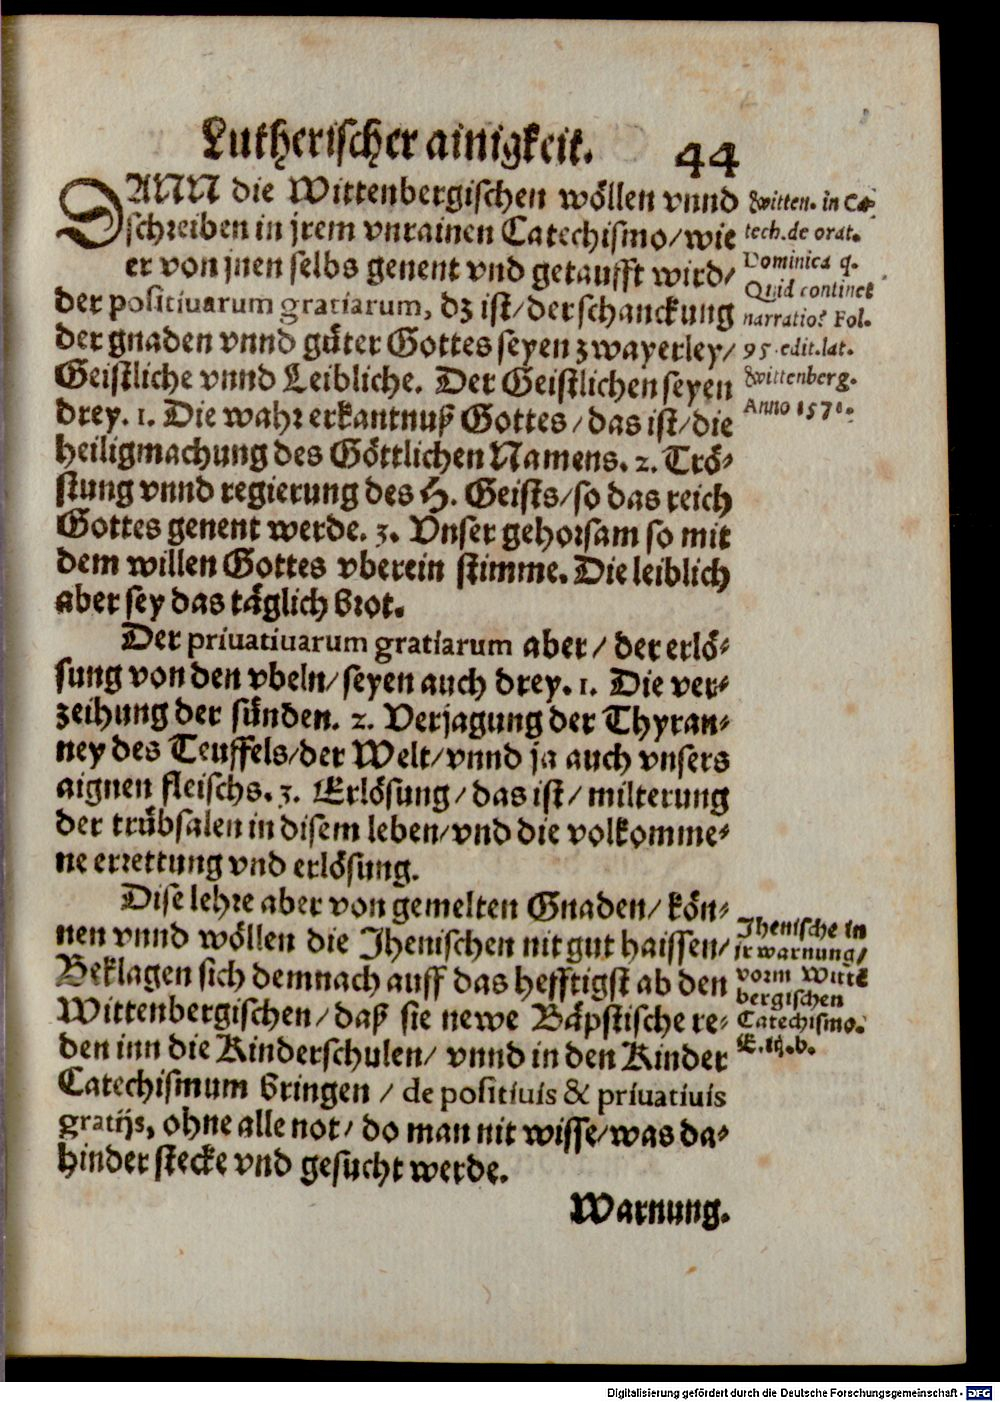 Lutherischer ainigkeit. 44
DANN die Wittenbergischen wöllen vnnd
schreiben in jrem vnrainen Catechismo/ wie
er von jnen selbs genent vnd getaufft wird/
der positiuarum gratiarum, dz ist/ der schanckung
der gnaden vnnd güter Gottes seyen zwayerley/
Geistliche vnnd Leibliche. Der Geistlichen seyen
drey. 1. Die wahr erkantnuß Gottes/ das ist/ die
heiligmachung des Göttlichen Namens. 2. Trö-
stung vnnd regierung des H. Geists/ so das reich
Gottes genent werde. 3. Vnser gehorsam so mit
dem willen Gottes vberein stimme. Die leiblich
aber sey das täglich brot.
Witten. in Ca-
tech. de orat.
Dominica q.
Quid continet
narratio? Fol.
95. edit. lat.
Wittenberg.
Anno 1571.
Der priuatiuarum gratiarum aber/ der erlö-
sung von den vbeln/ seyen auch drey. 1. Die ver-
zeihung der sünden. 2. Verjagung der Thyran-
ney des Teuffels/ der Welt/ vnnd ja auch vnsers
aignen fleischs. 3. Erlösung/ das ist/ milterung
der trübsalen in disem leben/ vnd die volkomme-
ne errettung vnd erlösung.
Dise lehre aber von gemelten Gnaden/ kön-
nen vnnd wöllen die Jhenischen nit gut haissen/
Beklagen sich demnach auff das hefftigst ab den
Wittenbergischen/ daß sie newe Bäpstische re-
den inn die Kinderschulen/ vnnd in den Kinder
Catechismum bringen/ de positiuis & priuatiuis
gratijs, ohne alle not/ do man nit wisse/ was da-
hinder stecke vnd gesucht werde.
Jhenische in
jr warnung/
vorm Witte
bergischen
Catechismo.
E. iij. b.
Warnung.
Digitalisierung gefördert durch die Deutsche Forschungsgemeinschaft - DFG